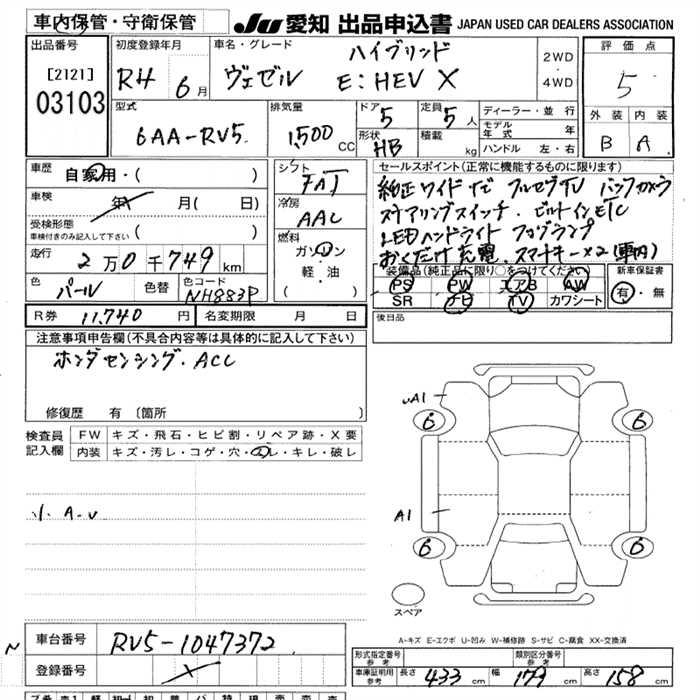 車内保管・守衛保管
JU 愛知 出品申込書 JAPAN USED CAR DEALERS ASSOCIATION
出品番号
[2121]
03103
初度登録年月
RH 6月
車名・グレード
ハイブリッド
ヴェゼル E:HEV X
2WD
・
4WD
評価点
5
外装 内装
B A
型式
6AA-RV5
排気量
1,500 CC
ドア
5
定員
5人
形状
HB
積載
kg
ディーラー・並行
モデル年式 年
ハンドル 左・右
車歴
自家用・( )
車検
年 月( 日)
受検形態
車検付きのみ記入して下さい
走行
2万0千749km
色
パール
色替
色コード
NH883P
シフト
FAT
冷房
AAC
燃料
ガソリン
軽・油
( )
セールスポイント(正常に機能するものに限ります)
純正ワイドナビ フルセグTV バックカメラ
ステアリングスイッチ・ビルトインETC
LEDハンドライト フォグランプ
おくだけ充電、スマートキー×2(車内)
装備品(純正品に限り○をつけてください)
PS PW エアB AW
SR ナビ TV カワシート
新車保証書
有・無
R券 11,740円
名変期限 月 日
後日品
注意事項申告欄(不具合内容等は具体的に記入して下さい)
ホンダセンシング・ACC
修復歴 有〔箇所 〕
検査員記入欄
FW キズ・飛石・ヒビ割・リペア跡・X要
内装 キズ・汚レ・コゲ・穴・スレ・キレ・破レ
小 A-U
UA1
A1
6
6
6
6
スペア
A-キズ E-エクボ U-凹み W-補修跡 S-サビ C-腐食 XX-交換済
N
車台番号 RV5-1047372
登録番号
形式指定番号
参考
類別区分番号
参考
車庫証明用
参考
長さ 433cm 幅 179cm 高さ 158cm